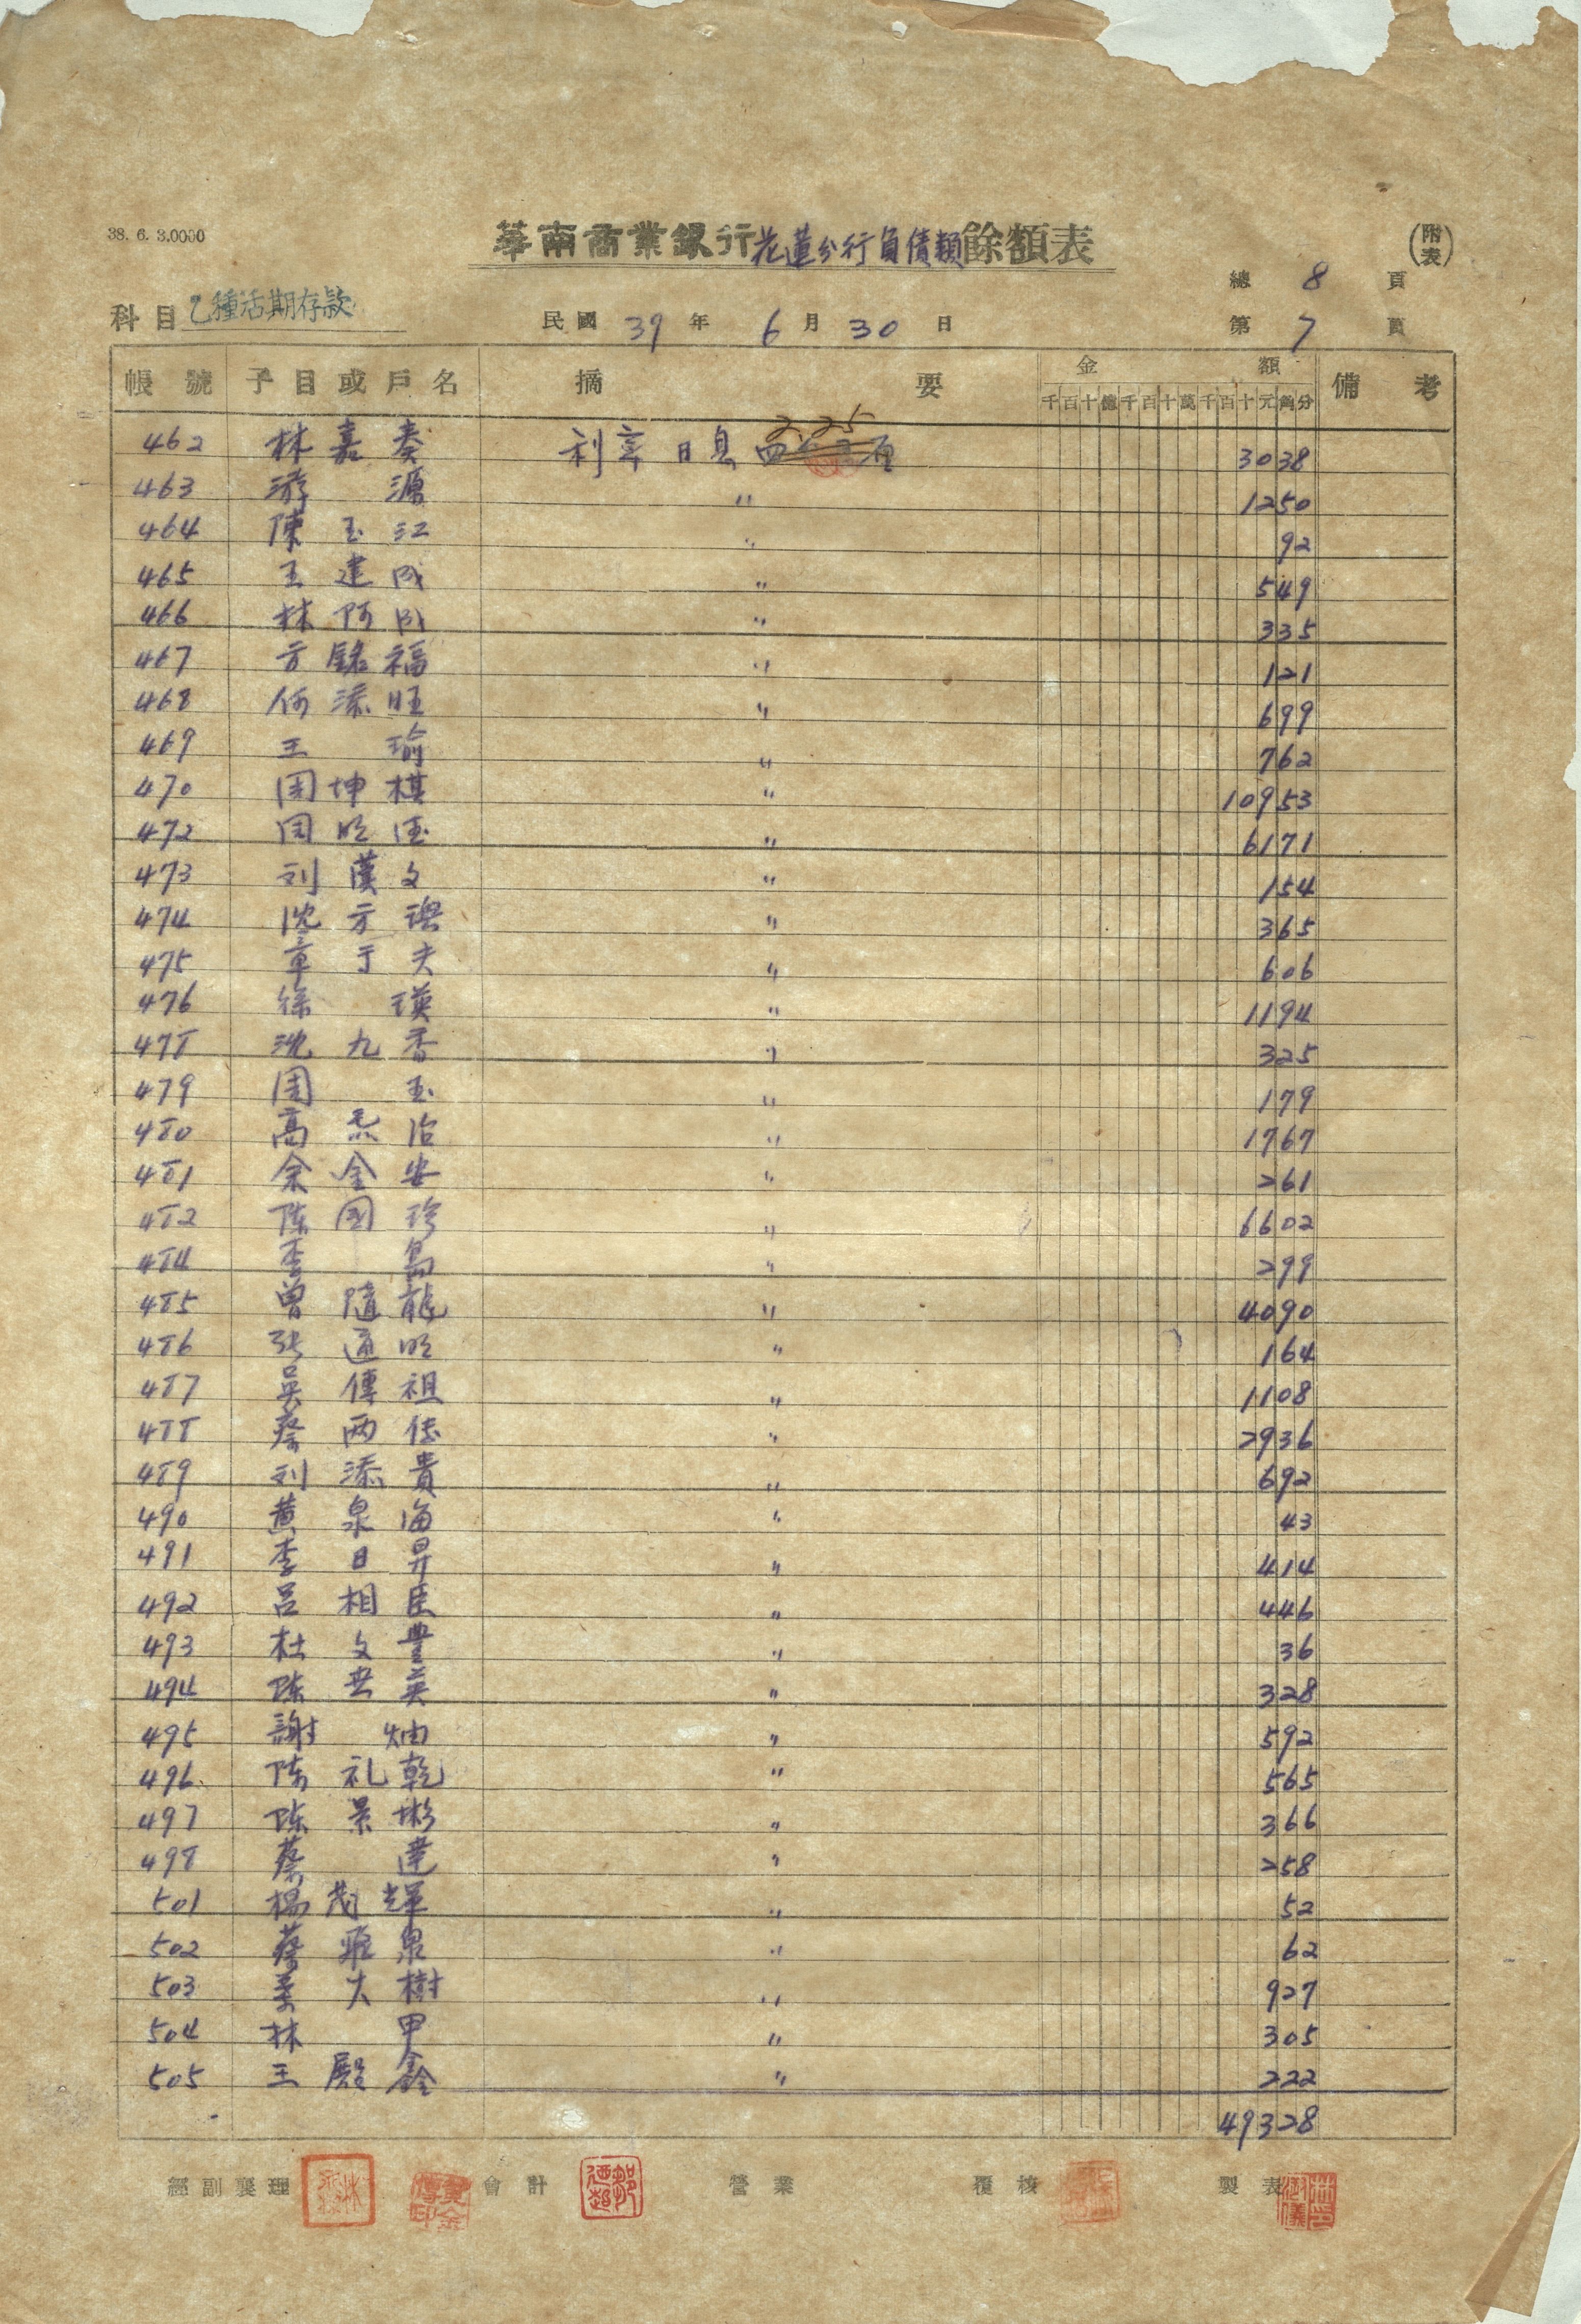 38. 6. 3.0000
華南商業銀行花蓮分行負債類餘額表
(附表)
總 8 頁
科目 乙種活期存款
民國 39 年 6 月 30 日
第 7 頁
帳號 子目或戶名 摘要 金額 備考
千百十億千百十萬千百十元角分
2.25
462 林嘉奏 利率日息四 3038
463 游源 〃 1250
464 陳玉江 〃 92
465 王建成 〃 549
466 林阿成 〃 335
467 方銘福 〃 121
468 何添旺 〃 699
469 王瑜 〃 762
470 周坤棋 〃 10953
472 周明 〃 6171
473 刘漢文 〃 154
474 沈方 〃 365
475 章于夫 〃 606
476 徐瑛 〃 1194
478 沈九香 〃 325
479 周玉 〃 179
480 高治 〃 1767
481 余金安 〃 261
482 陈国珍 〃 6602
484 李 〃 299
485 曾隨龍 〃 4090
486 张通明 〃 164
487 吳傳祖 〃 1108
488 蔡两 〃 2936
489 刘添貴 〃 692
490 黄泉海 〃 43
491 李日昇 〃 414
492 呂相臣 〃 446
493 杜文豊 〃 36
494 陈英 〃 328
495 謝灿 〃 592
496 陈礼乾 〃 565
497 陈景彬 〃 366
498 蔡蓮 〃 258
501 楊茂輝 〃 52
502 蔡泉 〃 62
503 大樹 〃 927
504 林甲 〃 305
505 王殿鑫 〃 222
49328
經副襄理 會計 營業 覆核 製表